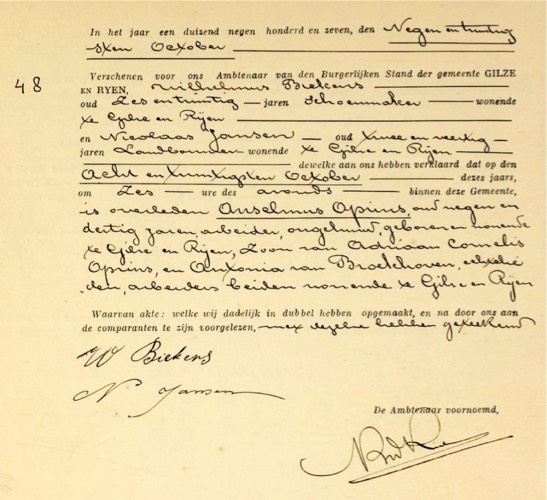 In het jaar een duizend negen honderd en zeven, den Negen en twintig
sten October
48
Verschenen voor ons Ambtenaar van den Burgerlijken Stand der gemeente GILZE
EN RYEN, Wilhelmus Biekens
oud Zes en twintig jaren schoenmaker wonende
te Gilze en Rijen
en Nicolaas Jansen oud twee en veertig
jaren Landbouwer wonende te Gilze en Rijen
dewelke aan ons hebben verklaard dat op den
Acht en twintigsten October dezes jaars,
om Zes ure des avonds binnen deze Gemeente,
is overleden Anselmus Oprins, oud negen en
dertig jaren, arbeider, ongehuwd, geboren en wonende
te Gilze en Rijen, Zoon van Adriaan Cornelis
Oprins, en Antonia van Broekhoven, echtelie
den, arbeiders beiden wonende te Gilze en Rijen
Waarvan akte: welke wij dadelijk in dubbel hebben opgemaakt, en na door ons aan
de comparanten te zijn voorgelezen, met dezelve hebben geteekend
W Biekens
N Jansen
De Ambtenaar voornoemd,